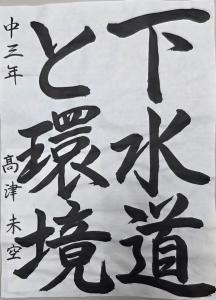 下水道
と環境
中三年 髙津未空